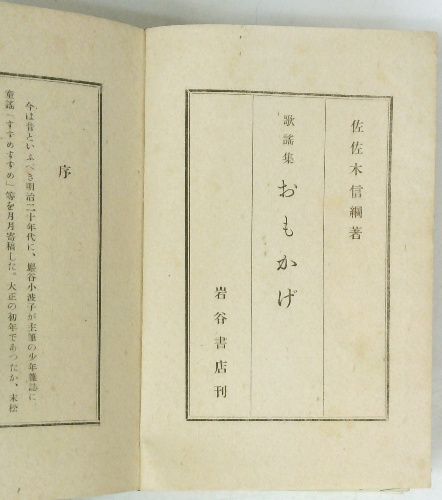 佐佐木信綱著
歌謡集 おもかげ
岩谷書店刊
序
今は昔といふべき明治二十年代に、巖谷小波子が主筆の少年雜誌に
童謡「すずめすずめ」等を月月寄稿した。大正の初年であつたか、末松